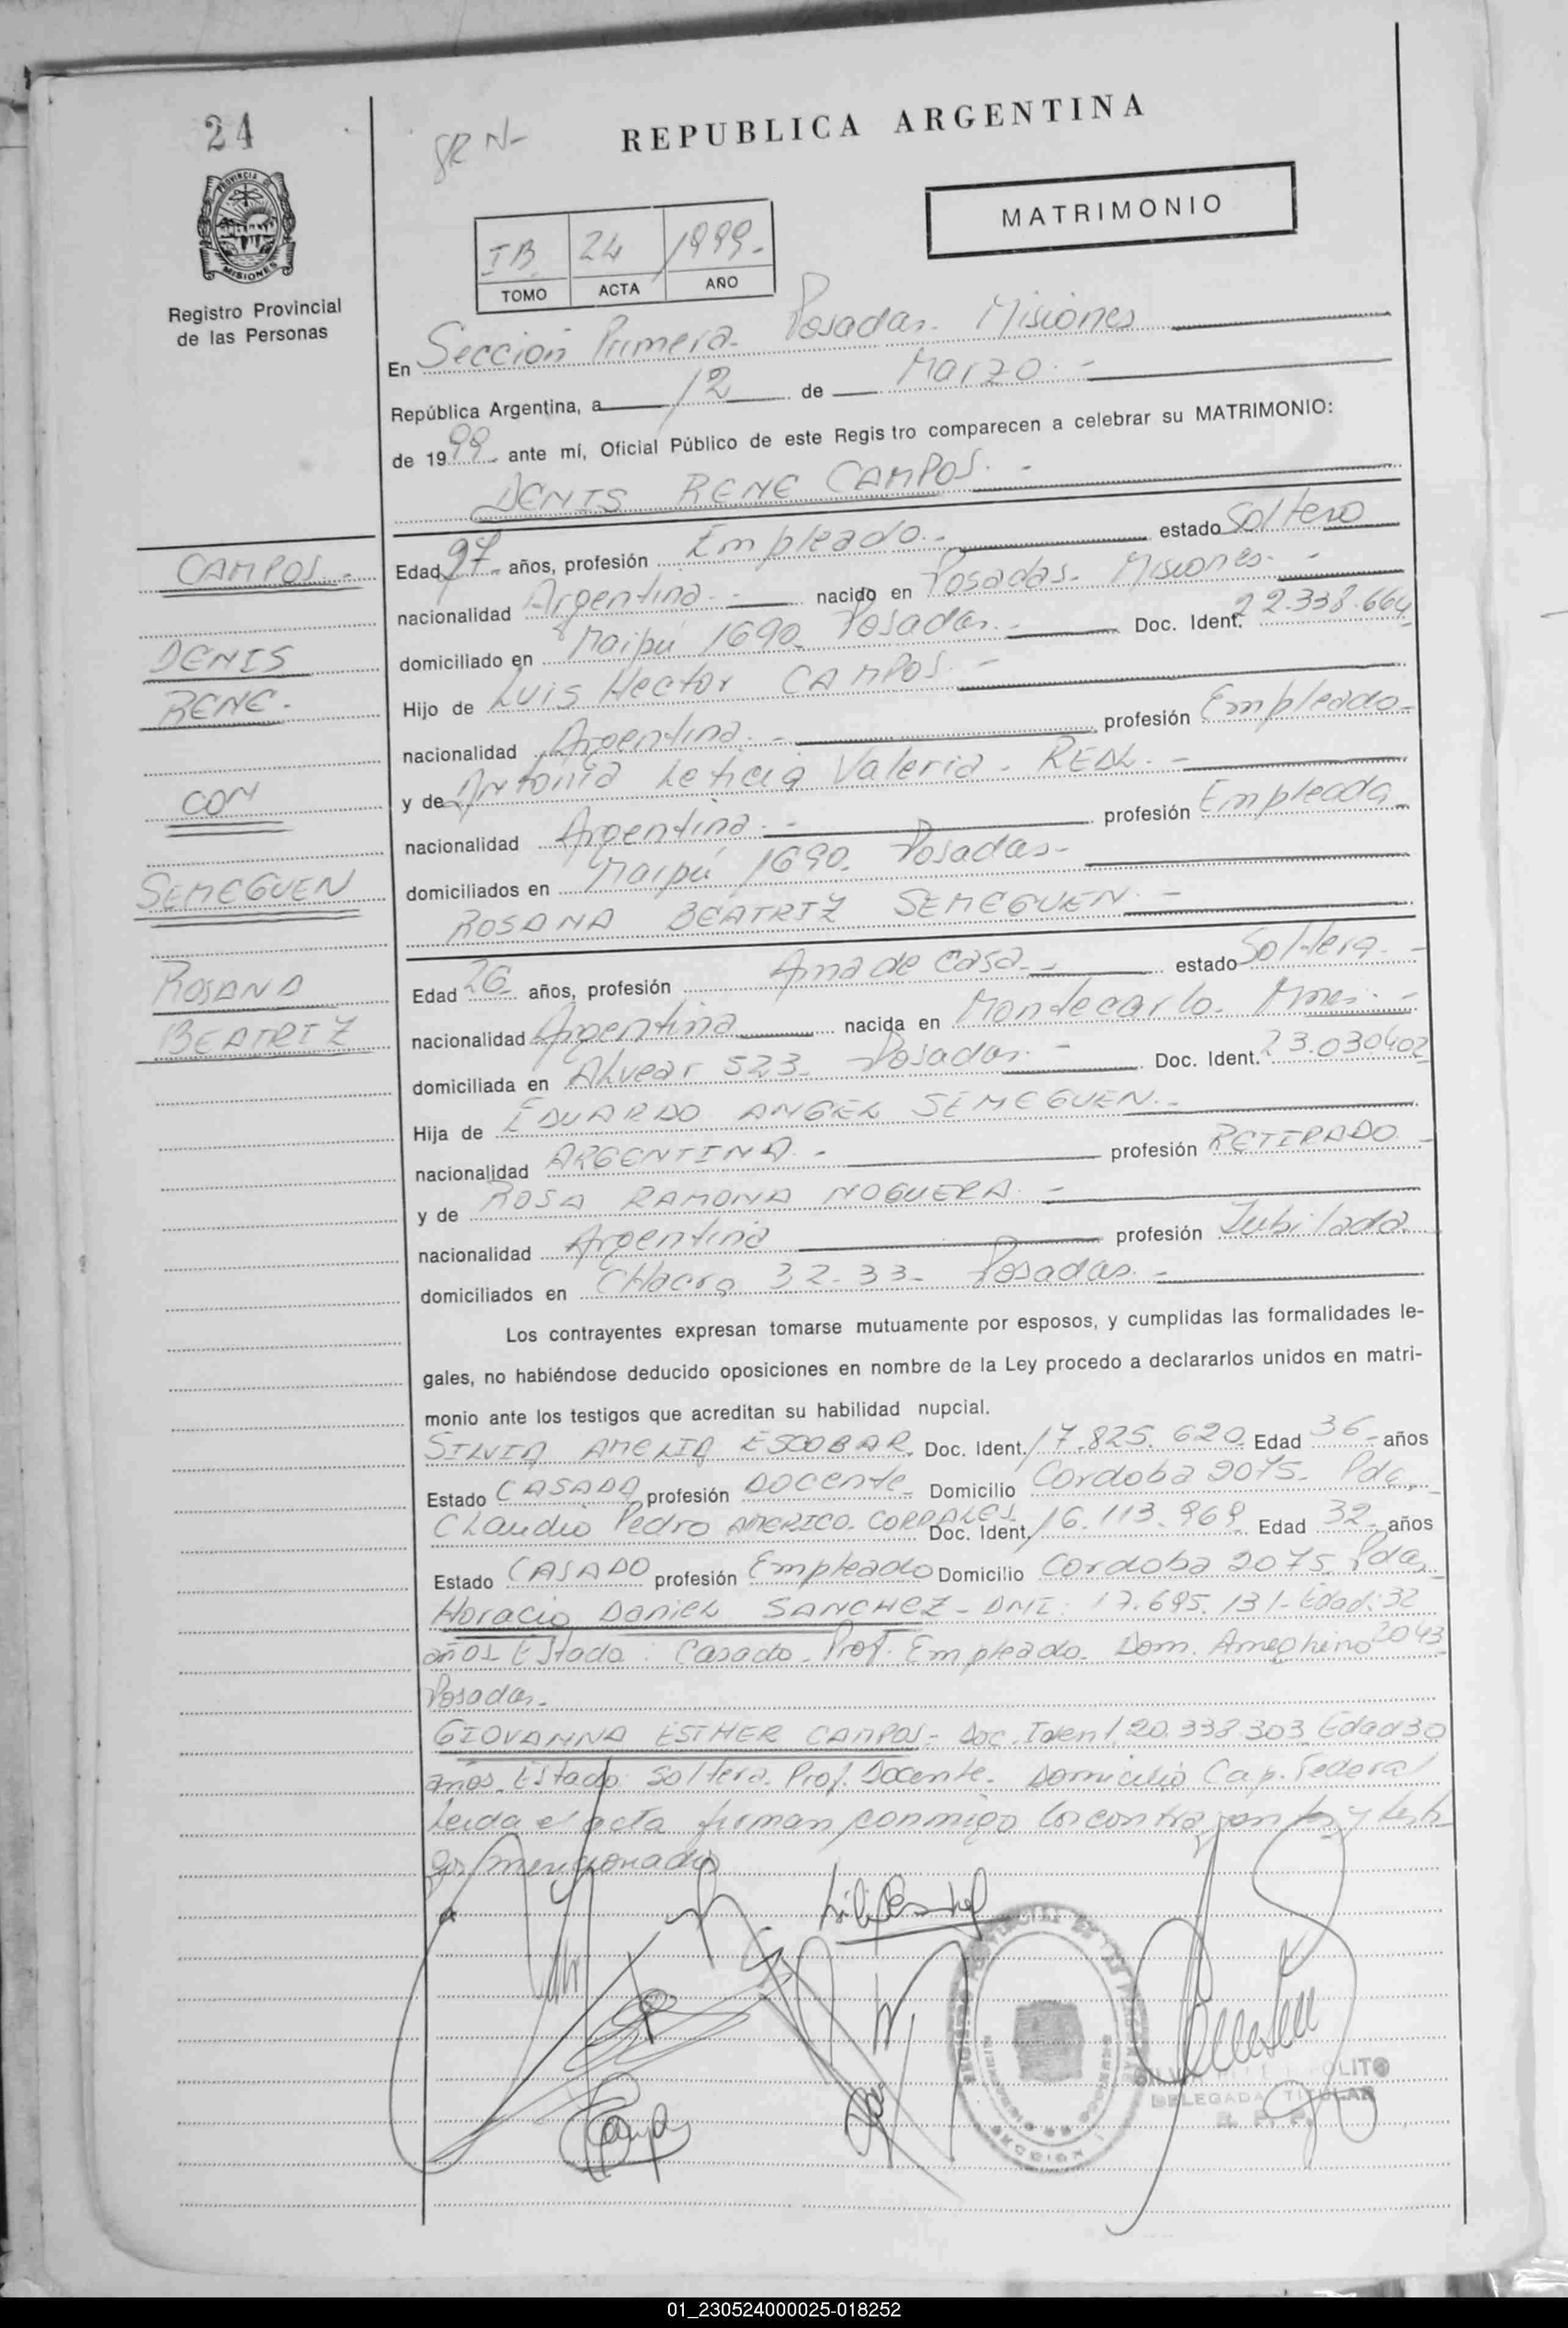 24
PROVINCIA DE
MISIONES
Registro Provincial
de las Personas
REPUBLICA ARGENTINA
MATRIMONIO
IB. 24 1999.-
TOMO ACTA AÑO
En Sección Primera- Posadas- Misiones
República Argentina, a 12 de Marzo.-
de 1999- ante mí, Oficial Público de este Regis tro comparecen a celebrar su MATRIMONIO:
DENIS RENE CAMPOS.-
CAMPOS.-
DENIS
RENE.-
CON
SEMEGUEN
ROSANA
BEATRIZ
Edad 27- años, profesión Empleado.- estado Soltero
nacionalidad Argentina.- nacido en Posadas- Misiones.-
domiciliado en Maipú 1690- Posadas.- Doc. Ident. 22.338.664-
Hijo de Luis Hector CAMPOS.-
nacionalidad Argentina.- profesión Empleado-
y de Antonia Leticia Valeria- REAL.-
nacionalidad Argentina.- profesión Empleada-
domiciliados en Maipú 1690- Posadas-
ROSANA BEATRIZ SEMEGUEN.-
Edad 26- años, profesión Ama de Casa.- estado Soltera.-
nacionalidad Argentina nacida en Montecarlo- Mnes.-
domiciliada en Alvear 523- Posadas.- Doc. Ident. 23.030402-
Hija de EDUARDO ANGEL SEMEGUEN.-
nacionalidad ARGENTINA.- profesión RETIRADO-
y de ROSA RAMONA NOGUERA.-
nacionalidad Argentina profesión Jubilada
domiciliados en Chacra 32-33- Posadas.-
Los contrayentes expresan tomarse mutuamente por esposos, y cumplidas las formalidades le-
gales, no habiéndose deducido oposiciones en nombre de la Ley procedo a declararlos unidos en matri-
monio ante los testigos que acreditan su habilidad nupcial.
SILVIA AMELIA ESCOBAR. Doc. Ident. 17.825.620- Edad 36- años
Estado CASADA profesión Docente- Domicilio Cordoba 2075- Pdas-
Claudio Pedro AMERICO- CORRALES. Doc. Ident. 16.113.969- Edad 32- años
Estado CASADO profesión Empleado Domicilio Cordoba 2075 Pdas-
Horacio Daniel SANCHEZ- DNI: 17.695.131- Edad: 32
años Estado: Casado- Prof. Empleado- Dom. Ameghino 2043
Posadas.-
GIOVANNA ESTHER CAMPOS- Doc. Ident. 20.338.303 Edad 30
años- Estado: Soltera- Prof. Docente- Domicilio Cap. Federal
Leida el acta firman conmigo los contrayentes y testi
gos mencionados
DELEGADA TITULAR
01_230524000025-018252